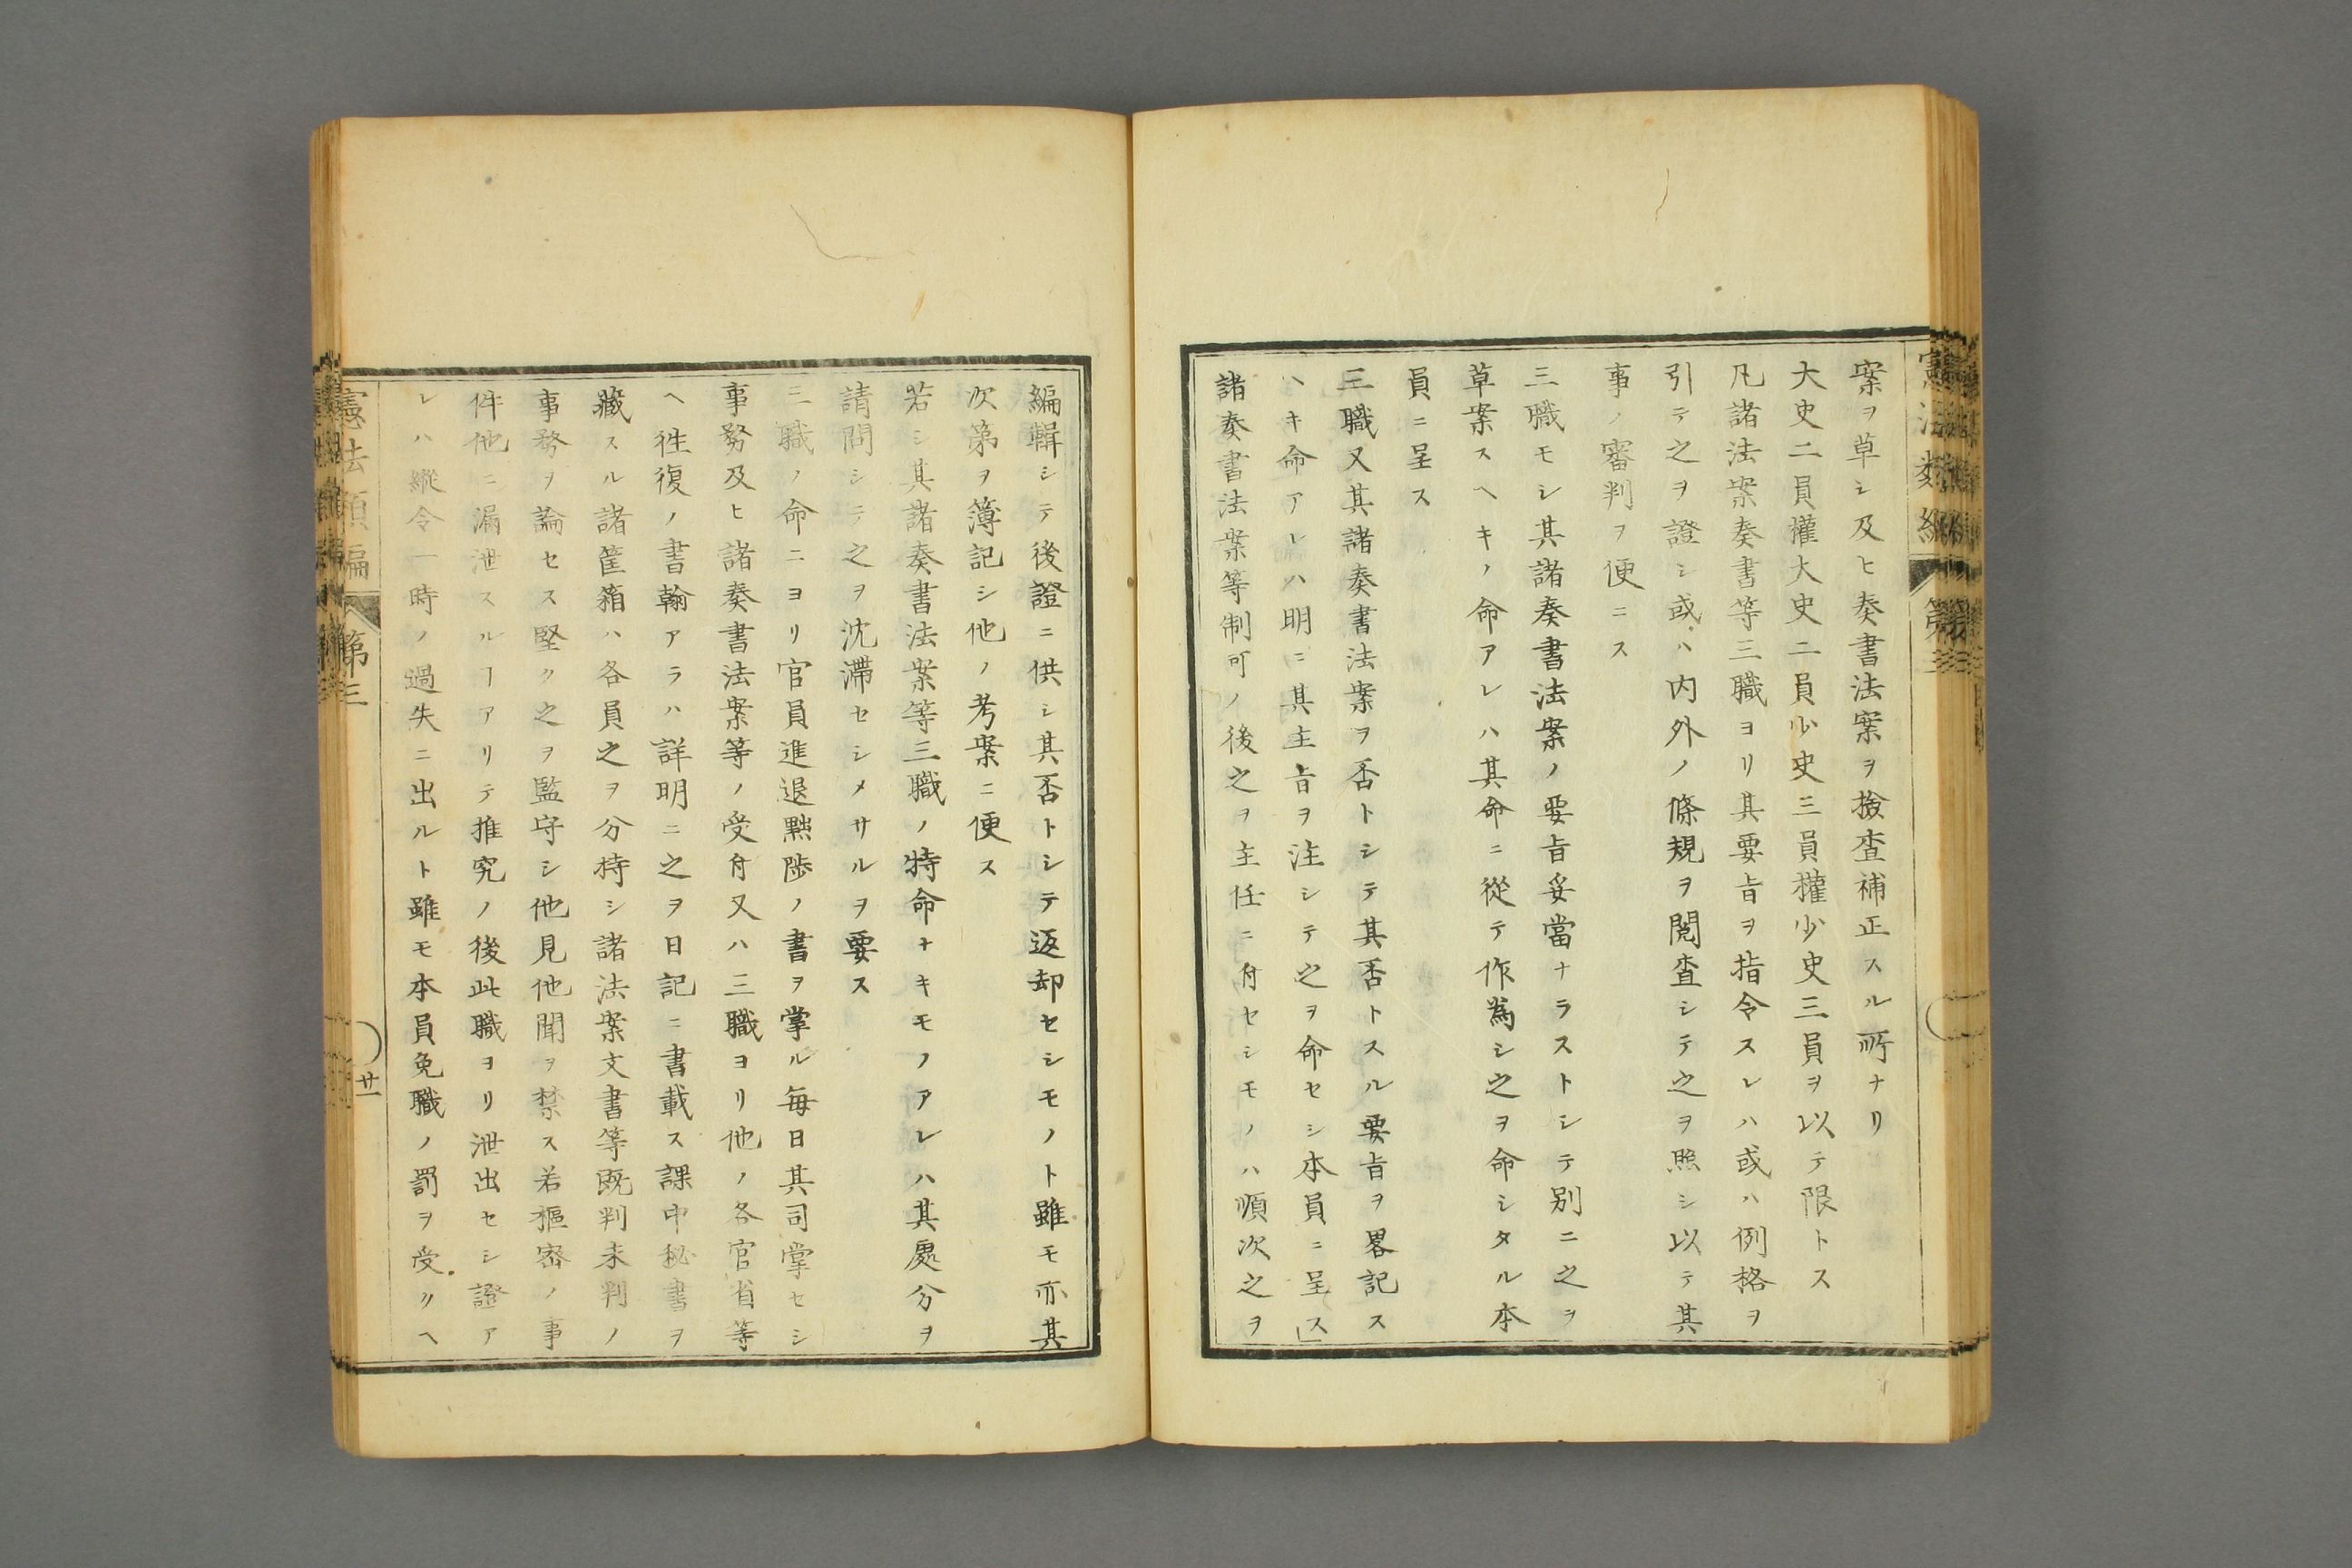 案ヲ草シ及ヒ奏書法案ヲ撿査補正スル所ナリ
大史二員權大史二員少史三員權少史三員ヲ以テ限トス
凡諸法案奏書等三職ヨリ其要旨ヲ指令スレハ或ハ例格ヲ
引テ之ヲ證シ或ハ内外ノ條規ヲ閲査シテ之ヲ照シ以テ其
事ノ審判ヲ便ニス
三職モシ其諸奏書法案ノ要旨妥當ナラストシテ別ニ之ヲ
草案スヘキノ命アレハ其命ニ從テ作爲シ之ヲ命シタル本
員ニ呈ス
三職又其諸奏書法案ヲ否トシテ其否トスル要旨ヲ畧記ス
ヘキ命アレハ明ニ其主旨ヲ注シテ之ヲ命セシ本員ニ呈ス」
諸奏書法案等制可ノ後之ヲ主任ニ付セシモノハ順次之ヲ
編輯シテ後證ニ供シ其否トシテ返却セシモノト雖モ亦其
次第ヲ簿記シ他ノ考案ニ便ス
若シ其諸奏書法案等三職ノ特命ナキモノアレハ其處分ヲ
請問シテ之ヲ沈滯セシメサルヲ要ス
三職ノ命ニヨリ官員進退黜陟ノ書ヲ掌ル毎日其司掌セシ
事務及ヒ諸奏書法案等ノ受付又ハ三職ヨリ他ノ各官省等
ヘ徃復ノ書翰アラハ詳明ニ之ヲ日記ニ書載ス課中秘書ヲ
藏スル諸篋箱ハ各員之ヲ分持シ諸法案文書等既判未判ノ
事務ヲ論セス堅ク之ヲ監守シ他見他聞ヲ禁ス若樞密ノ事
件他ニ漏泄スルヿアリテ推究ノ後此職ヨリ泄出セシ證ア
レハ縱令一時ノ過失ニ出ルト雖モ本員免職ノ罰ヲ受クヘ
憲法類編 第三
廿一